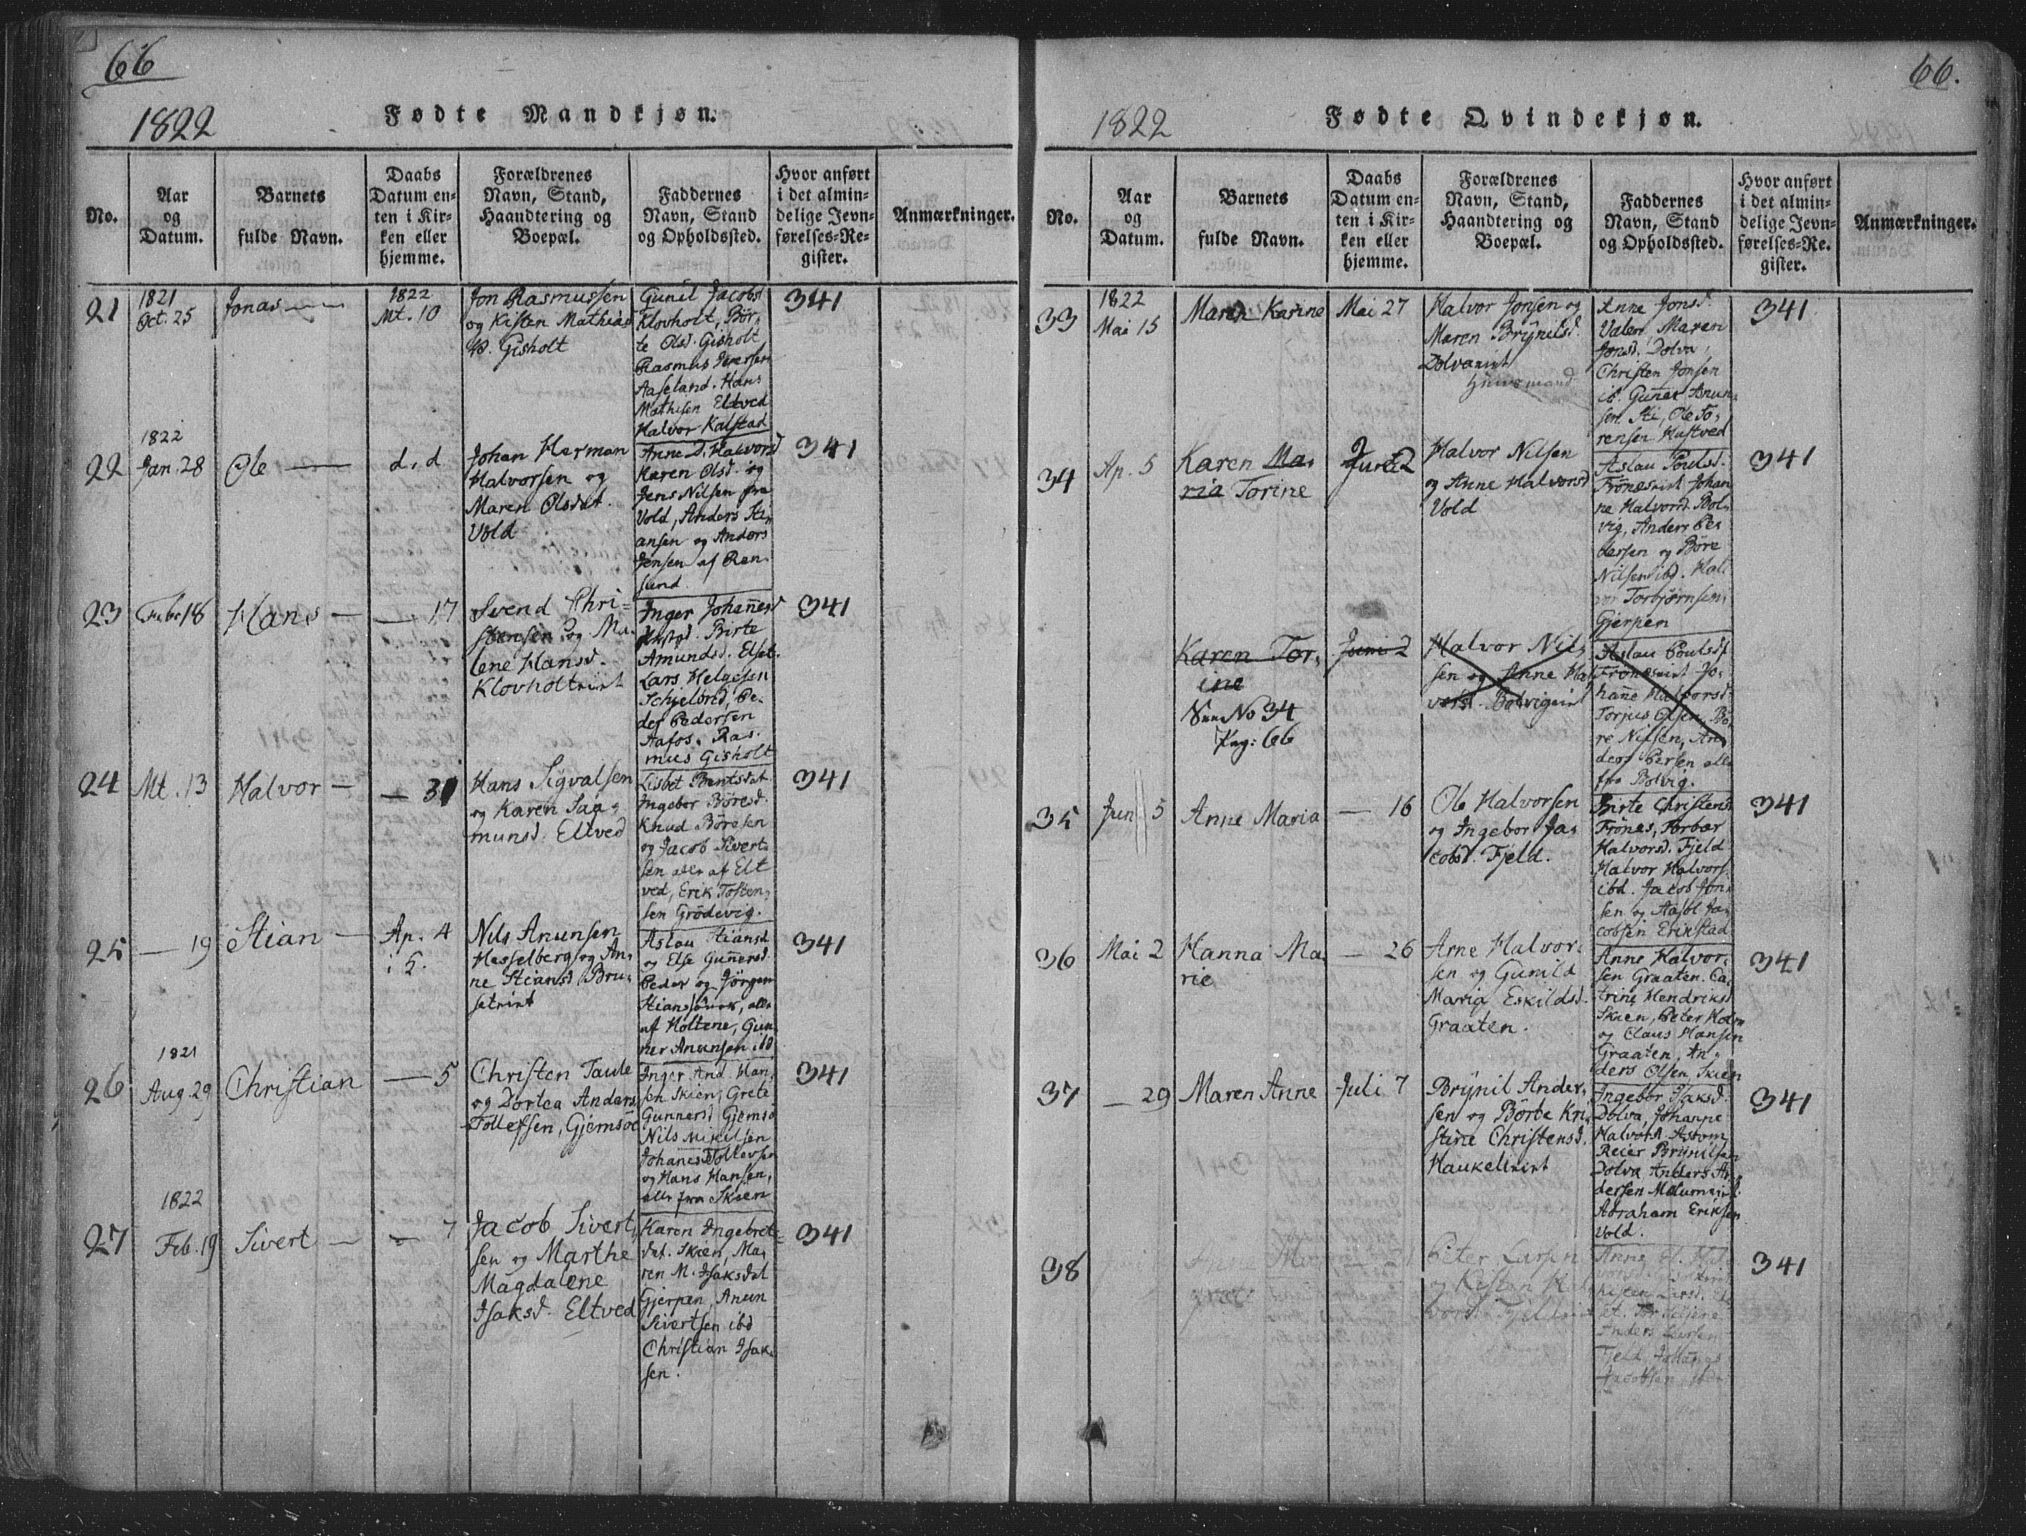 66
1822
Fødte Mandkjøn.
No.
Aar
og
Datum.
Barnets
fulde Navn.
Daabs
Datum en-
ten i Kir-
ken eller
hjemme.
Forældrenes
Navn, Stand,
Haandtering og
Boepæl.
Faddernes
Navn, Stand
og Opholdssted.
Hvor anført
i det almin-
delige Jevn-
førelses-Re-
gister.
Anmærkninger.
21
1821
Oct. 25
Jonas
1822
Mt. 10
Jon Rasmussen
og Kisten Mathias
D. Gisholt
Gunil Jacobsd
Klovholt, Bör-
te Olsd. Gisholt
Rasmus Iversen
Aaseland. Hans
Mathisen Eltved
Halvor Kalstad
341
22
1822
Jan. 28
Ole
d. d
Johan Herman
Halvorsen og
Maren Olsdat.
Vold
Anne D. Halvorsd
Karen Olsd. og
Jens Nilsen fra
Vold, Anders Sti-
ansen og Anders
Jensen af Ren-
sund.
341
23
Febr 18
Hans
17
Svend Chri-
stensen og Ma-
lene Hansd.
Klovholteiet
Inger Johanesd
Birte
Amundsd. Elset.
Lars Helgesen
Schjelsnd, Pe-
der Pedersen
Aafos. Ras-
mus Gisholt
341
24
Mt. 13
Halvor
31
Hans Sigvalsen
og Karen Saa-
munsd. Eltved
Lisbet Bentsdat.
Ingebor Böresd.
Knud Böresen
og Jacob Sivert-
sen alle af Elt
ved, Erik Tosten-
sen Grödevig.
341
25
19
Stian
Ap. 4
i 5.
Nils Anunsen
Hesselberg og An-
ne Stiansd Bru-
seteiet
Aslau Stiansd
og Else Gunersd.
Peder og Jörgen
alle
af Holtene, Gun
ner Anunsen ibd
341
26
1821
Aug. 29
Christian
5
Christen Taule
og Dortea Anders
Tollefsen, Gjemsöe
Inger And. Han-
sen Skien, Grete
Gunnersd, Gjemsö
Nils Mikelsen
Johanes Tollevsen
og Hans Hansen,
alle fra Skien
341
27
1822
Feb. 19
Sivert
7
Jacob Sivert-
sen og Marthe
Magdalene
Isaksd. Eltved
Karen Ingebret-
dat. Skien, Ma-
ren M. Isaksdat
Gjerpen, Anun
Sivertsen ibd
Christian Isak-
sen.
341
66.
1822
Fødte Qvindekjøn.
No.
Aar
og
Datum.
Barnets
fulde Navn.
Daabs
Datum en-
ten i Kir-
ken eller
hjemme.
Forældrenes
Navn, Stand,
Haandtering og
Boepæl.
Faddernes
Navn, Stand
og Opholdssted.
Hvor anført
i det almin-
delige Jevn-
førelses-Re-
gister.
Anmærkninger.
33
1822
Mai 15
Maren Karine
Mai 27
Halvor Jonsen og
Maren Brynilsd.
Dolvaeiet
Huusmand
Anne Jonsd.
Valer, Maren
Jonsd. Dolva,
Christen Jonsen
ib. Guner Anun-
sen Sti, Ole To-
rensen Hustved
341
34
Ap. 5
Karen Ma-
ria Torine
Juni 2
Halvor Nilsen
og Anne Halvorsd
Vold
Aslau Poulsd.
Frönæseiet Johan
ne Halvorsd Bol-
vig, Anders Pe-
dersen og Böre
Nilsen ibd. Hal-
vor Torbjörnsen,
Gjerpen
341
Karen Tor-
ine
See No 34
Pag: 66
Juni 2
Halvor Nil-
sen og Anne Hal
vorsd. Bolvigeiet
Aslau Poulsd
Frönæseiet Jo-
hanne Halvorsd.
Torjus Olsen, Bö-
re Nilsen, An-
ders Persen alle
fra Bolvig.
35
Jun 5
Anne Maria
16
Ole Halvorsen
og Ingebor Ja-
cobsd. Fjeld.
Birte Christensd
Frönes, Torbør
Halvorsd. Fjeld
Halvor Halvors.
ibd. Jacob Jon-
sen og Aasol Ja-
cobsen Erikstad
341
36
Mai 2
Hanna Ma
rie
26
Arne Halvor-
sen og Gunild
Maria Eskildsd.
Graaten.
Anne Halvor-
sen Graaten. Ca-
trine Hendriksd
Skien, Peter Holm
og Claus Hansen
Graaten, An-
ders Olsen, Skien
341
37
29
Maren Anne
Juli 7
Brynil Ander-
sen og Börte Kri
stine Christensd.
Haukelieiet
Ingebör Isaksd.
Dolva, Johanne
Halvorsd.
Reier Brynilsen
Dolva Anders An-
dersen
Abraham Eriksen
Vold.
341
38
Peter Larsen
og Kisten Hal
vorsd. Fjeldeiet
Anne H. Hal-
Kisten Larsd.
Anders Larsen
Fjeld, Johanes
Jacobsen, ibd.
341